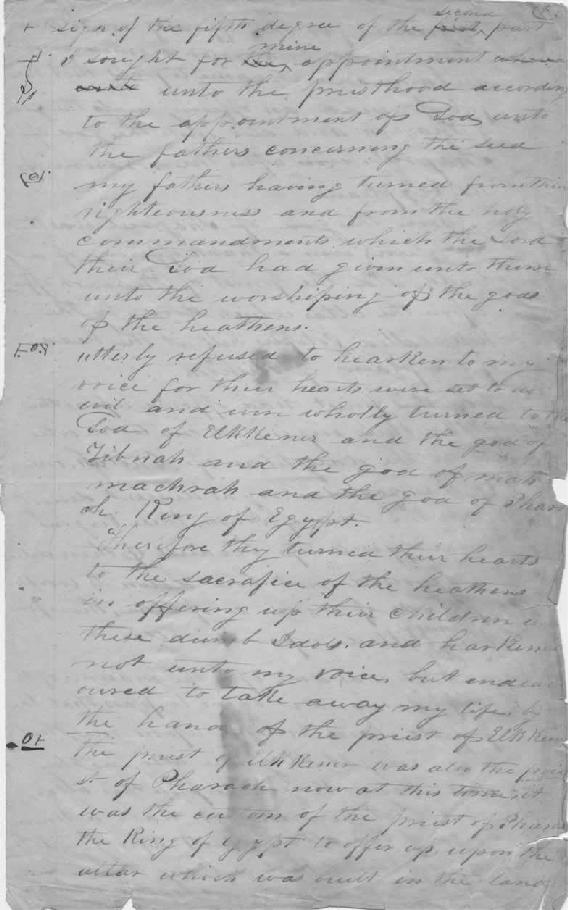 sign of the fifth degree of the first second part
I sought for his mine appointment whare
unto unto the priesthood according
to the appointment of God unto
the fathers concerning the seed
my fathers having turned from their
righteousness and from the holy
commandments which the Lord
their God had given unto them
unto the worshiping of the gods
of the heathens.
utterly refused to hearken to my
voice for their hearts were set to do
evil and were wholly turned to the
God of Elkkener and the god of
Zibnah and the god of mah
machrah and the god of Phar
oh King of Egypt.
Therefore they turned their hearts
to the sacrafice of the heathens
in offering up their children
these dumb Idols. and harkened
not unto my voice, but endeav
oured to take away my life by
the hand of the priest of Elkken
The priest of Elkkener was also the prie
st of Pharaoh now at this time it
was the custom of the priest of Phara
the King of egypt to offer up upon the
altar which was built in the land